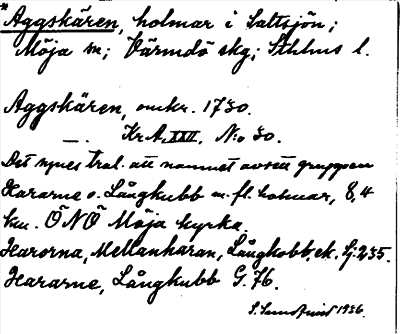 * Aggskären, holmar i Saltsjön;
Möja sn; Värmdö skg; Sthlms l.
Aggskären, omkr. 1730.
—. Kr.A. XXII. N:o 30.
Det synes trol. att namnet avsett gruppen
Hararne o. Långkubb m. fl. holmar, 8,4
km. ÖNÖ Möja kyrka.
Harorna, Mellanharan, Långkobb, ek. bj. 235.
Hararne, Långkubb G. 76.
S. 1936.